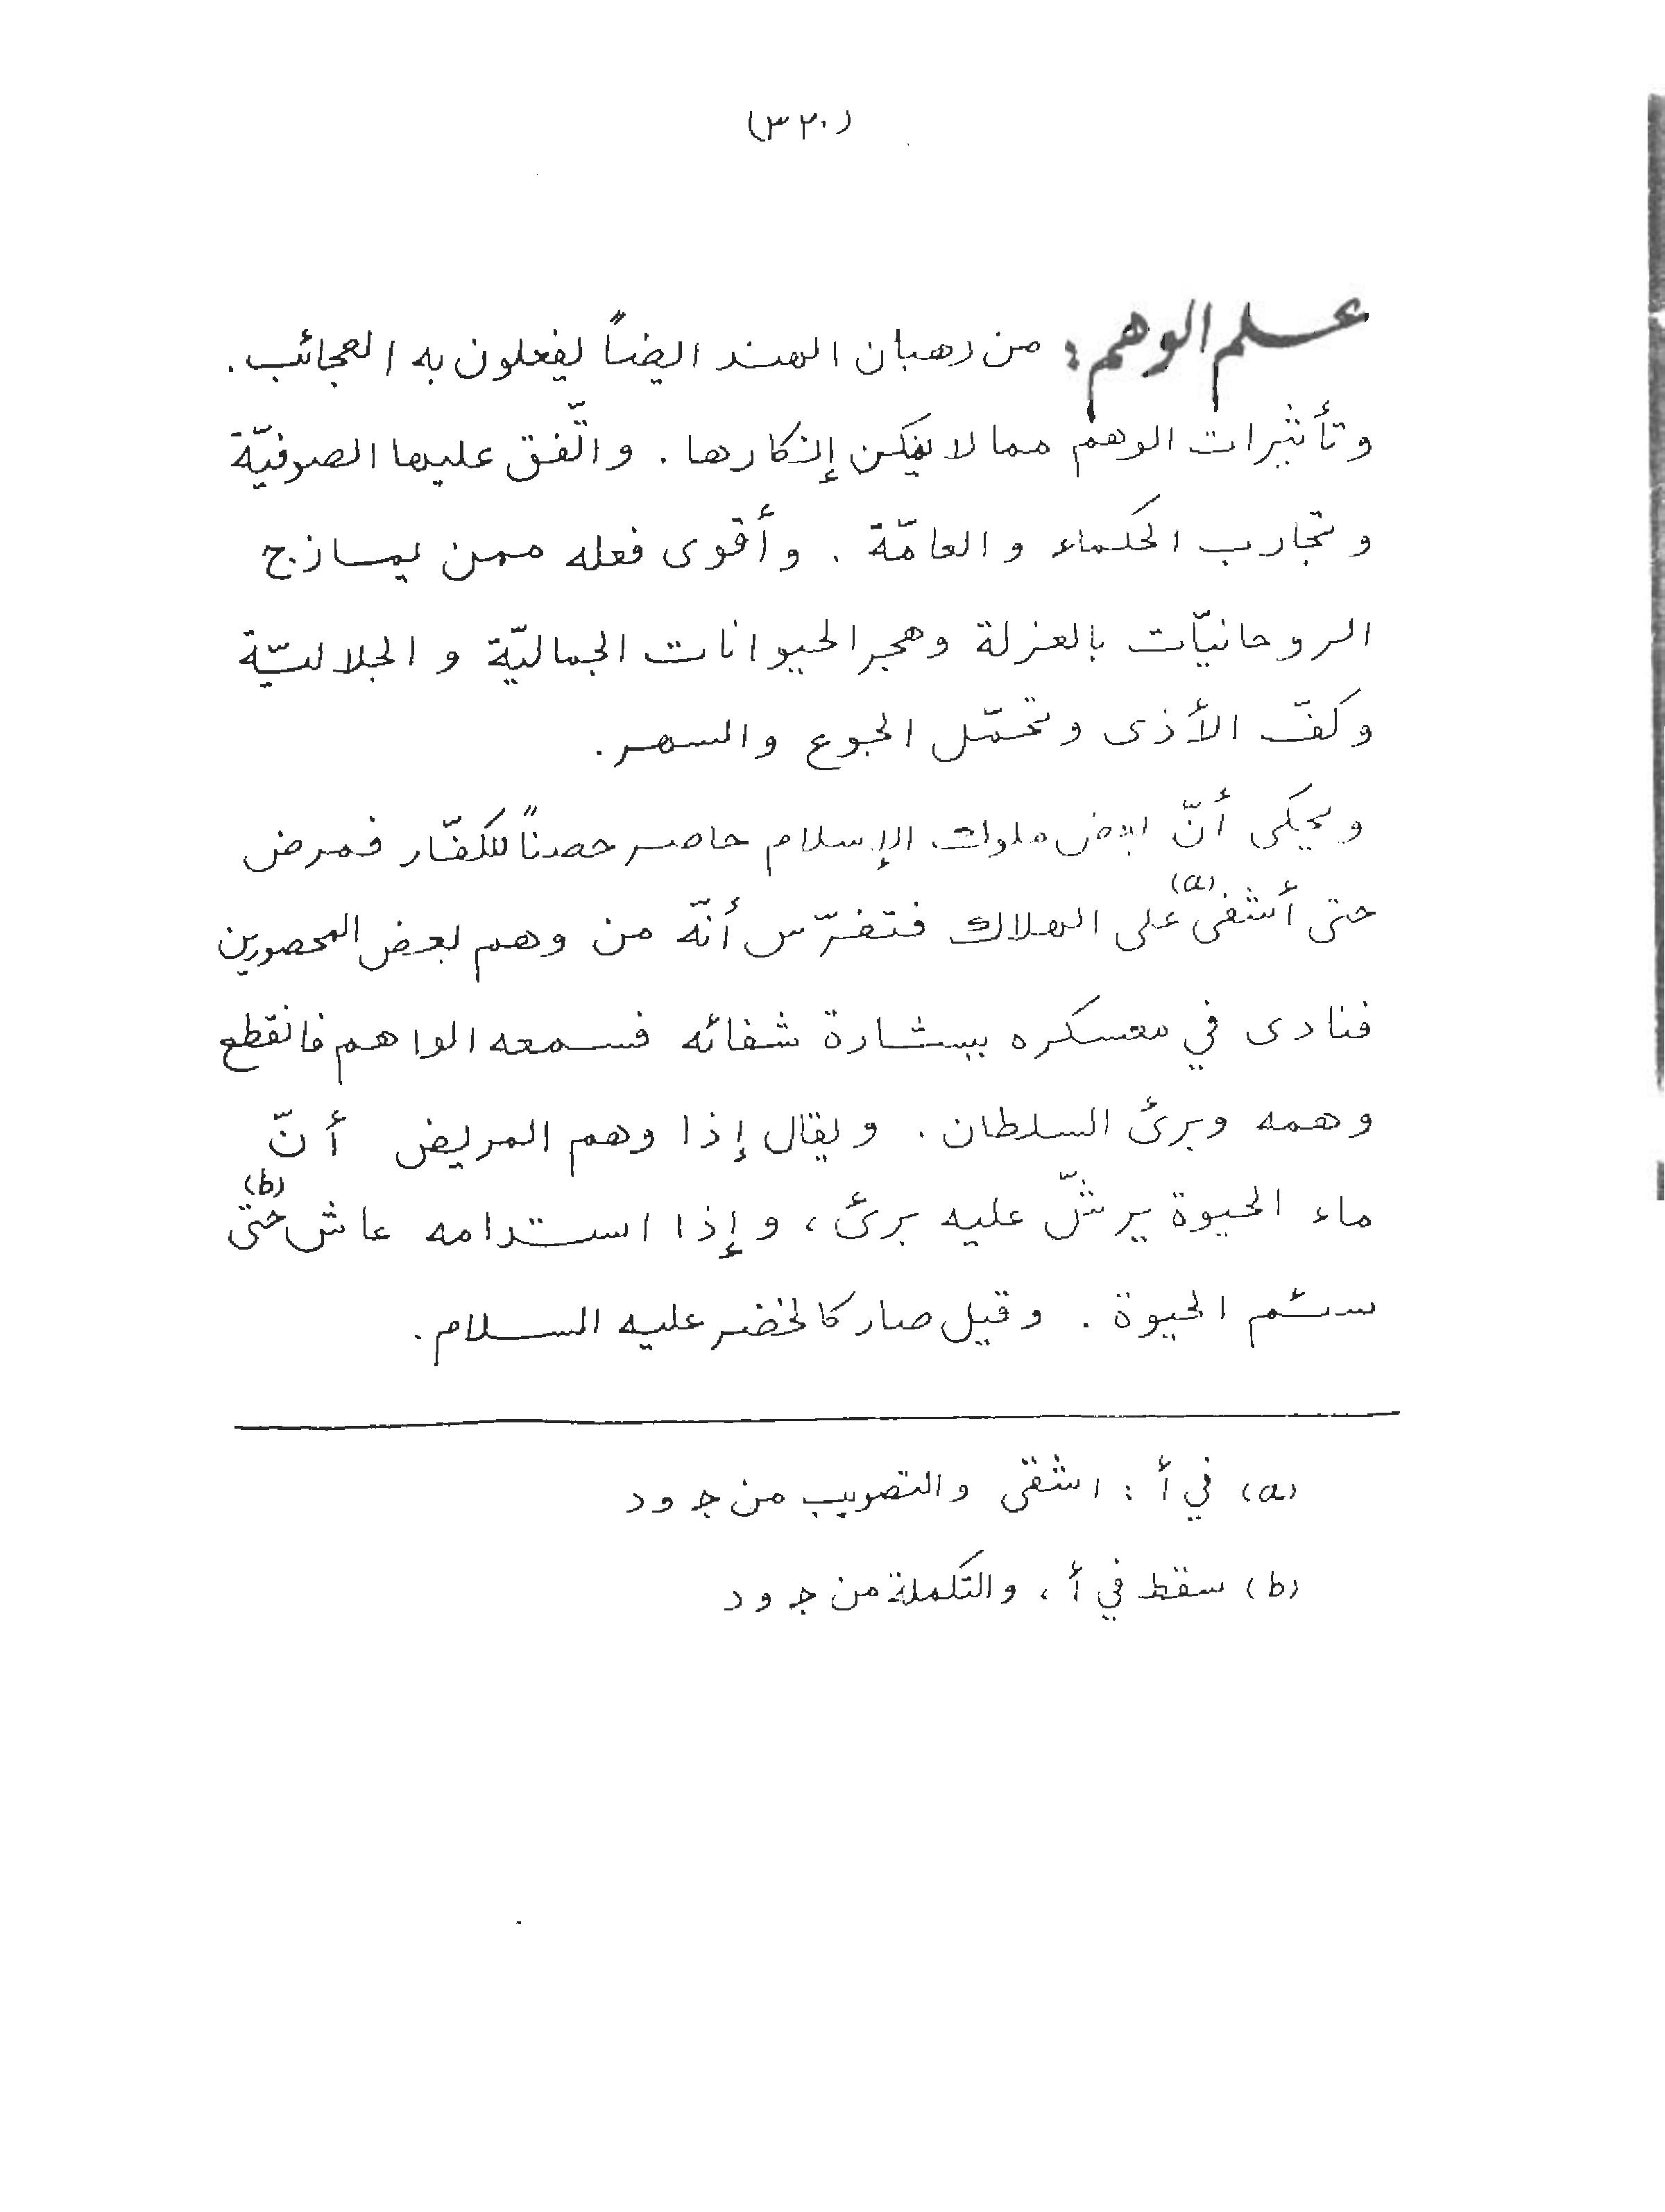 (٣٢٠)
علم الوهم: من رهبان الهند ايضاً يفعلون به العجائب.
وتأثيرات الوهم مما لا يمكن إنكارها. واتّفق عليها الصوفيّة
وتجارب الحكماء والعامّة. وأقوى فعله ممن يمازج
الروحانيّات بالعزلة وهجر الحيوانات الجماليّة والجلاليّة
وكفّ الأذى وتحمّل الجوع والسهر.
ويحكى أنّ بعض ملوك الإسلام حاصر حصناً للكفّار فمرض
حتى أشفى(a) على الهلاك فتفرّس أنّه من وهم بعض المحصورين
فنادى في معسكره ببشارة شفائه فسمعه الواهم فانقطع
وهمه وبرئ السلطان. ويقال إذا وهم المريض أنّ
ماء الحيوة يرشّ عليه برئ، وإذا استدامه عاش حتى(b)
سئم الحيوة. وقيل صار كالخضر عليه السلام.
(a) في أ: اشقى والتصويب من ج و د
(b) سقط في أ، والتكملة من ج و د